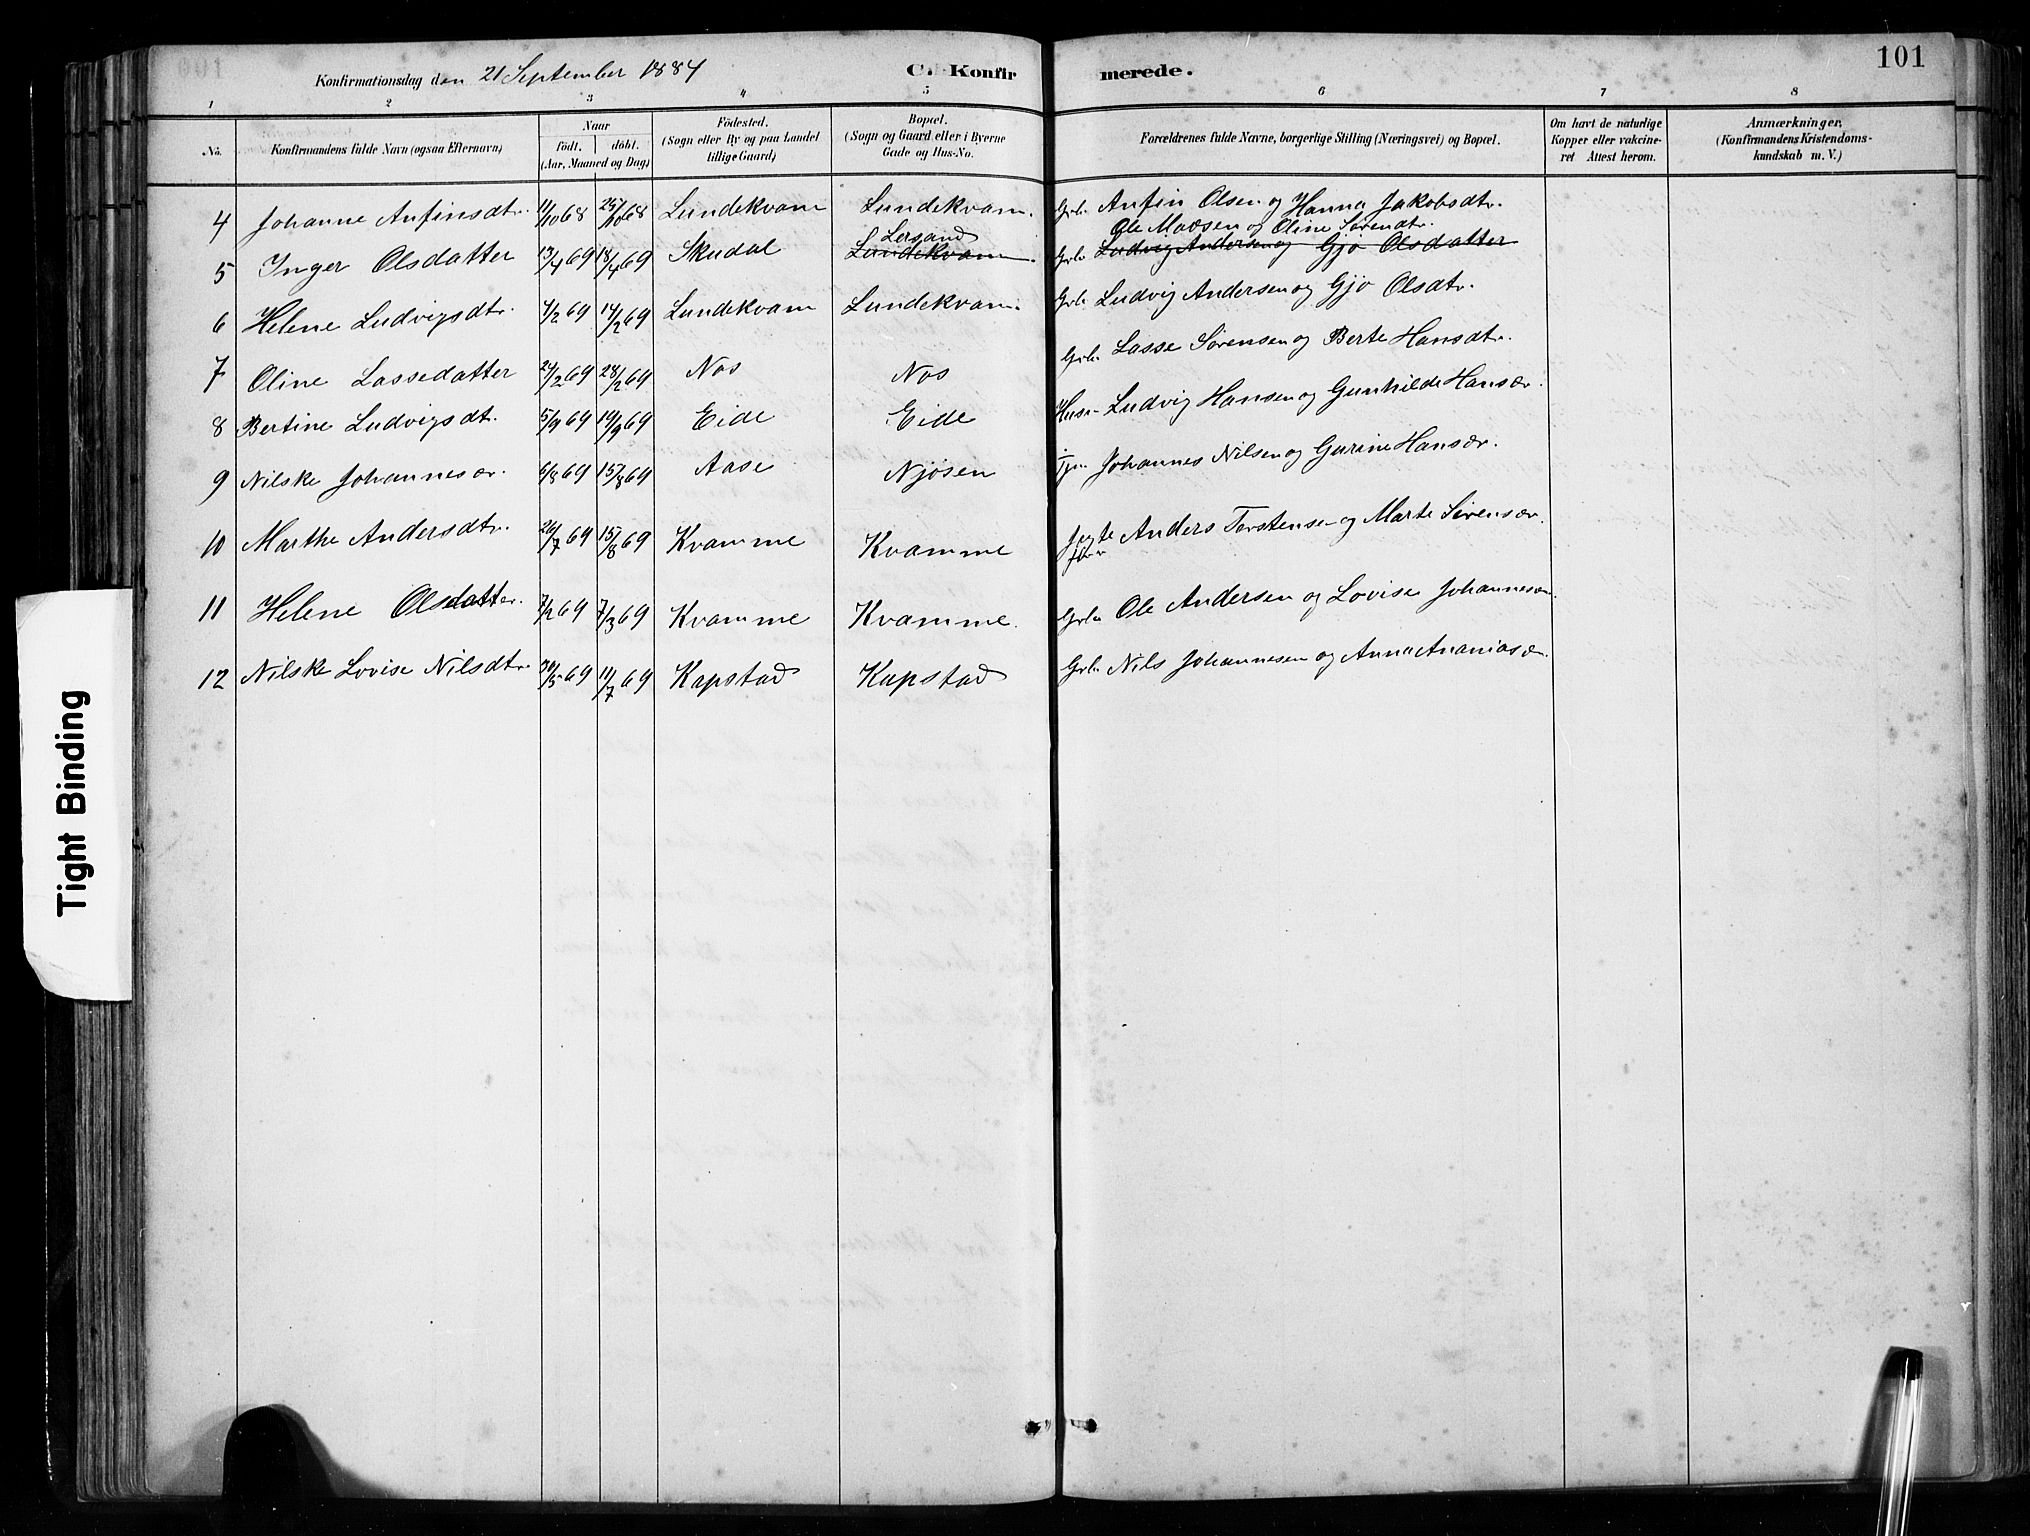 Konfirmationsdag den 21 September 1884 C. Konfirmerede. 101
1 2 3 4 5 6 7 8
No. Konfirmandens fulde Navn (ogsaa Efternavn)
Naar
født. døbt.
(Aar, Maaned og Dag)
Fødested.
(Sogn eller By og paa Landet
tillige Gaard)
Bopæl.
(Sogn og Gaard eller i Byerne
Gade og Hus-No.
Forældrenes fulde Navne, borgerlige Stilling (Næringsvei) og Bopæl.
Om havt de naturlige
Kopper eller vakcine-
ret Attest herom.
Anmærkninger,
(Konfirmandens Kristendoms-
kundskab m. V.)
4 Johanne Anfinsdtr. 11/10 68 25/10 68 Lundekvam Lundekvam. Grbr Anfin Olsen og Hanna Jakobsdtr.
Lersand Ole Madsen og Oline Sørendtr.
5 Inger Olsdatter 13/4 69 18/4 69 Skudal Lundekvam. Grbr Ludvig Andersen og Gjo Olsdatter
6 Helene Ludvigsdtr. 4/2 69 14/2 69 Lundekvam Lundekvam. Grbr Ludvig Andersen og Gjo Olsdtr.
7 Oline Lassedatter 24/2 69 28/2 69 Nos Nos Grbr Lasse Sørensen og Berte Hansdtr.
8 Bertine Ludvigsdt. 5/9 69 19/9 69 Eide Eide Husm Ludvig Hansen og Gunhilde Hansdr.
9 Nilske Johannesdr. 6/8 69 15/8 69 Aase Njøsen Tjen Johannes Nilsen og Gurine Hansdr.
10 Marthe Andersdtr. 26/7 69 15/8 69 Kvamme Kvamme Anders Torstensen og Marte Sørensdr.
11 Helene Olsdatter. 7/2 69 7/3 69 Kvamme Kvamme. Grbr Ole Andersen og Lovise Johannesdr.
12 Nilske Lovise Nilsdtr. 30/5 69 11/7 69 Kapstad Kapstad Grbr Nils Johannesen og Anna Ananiasdr.
Tight Binding